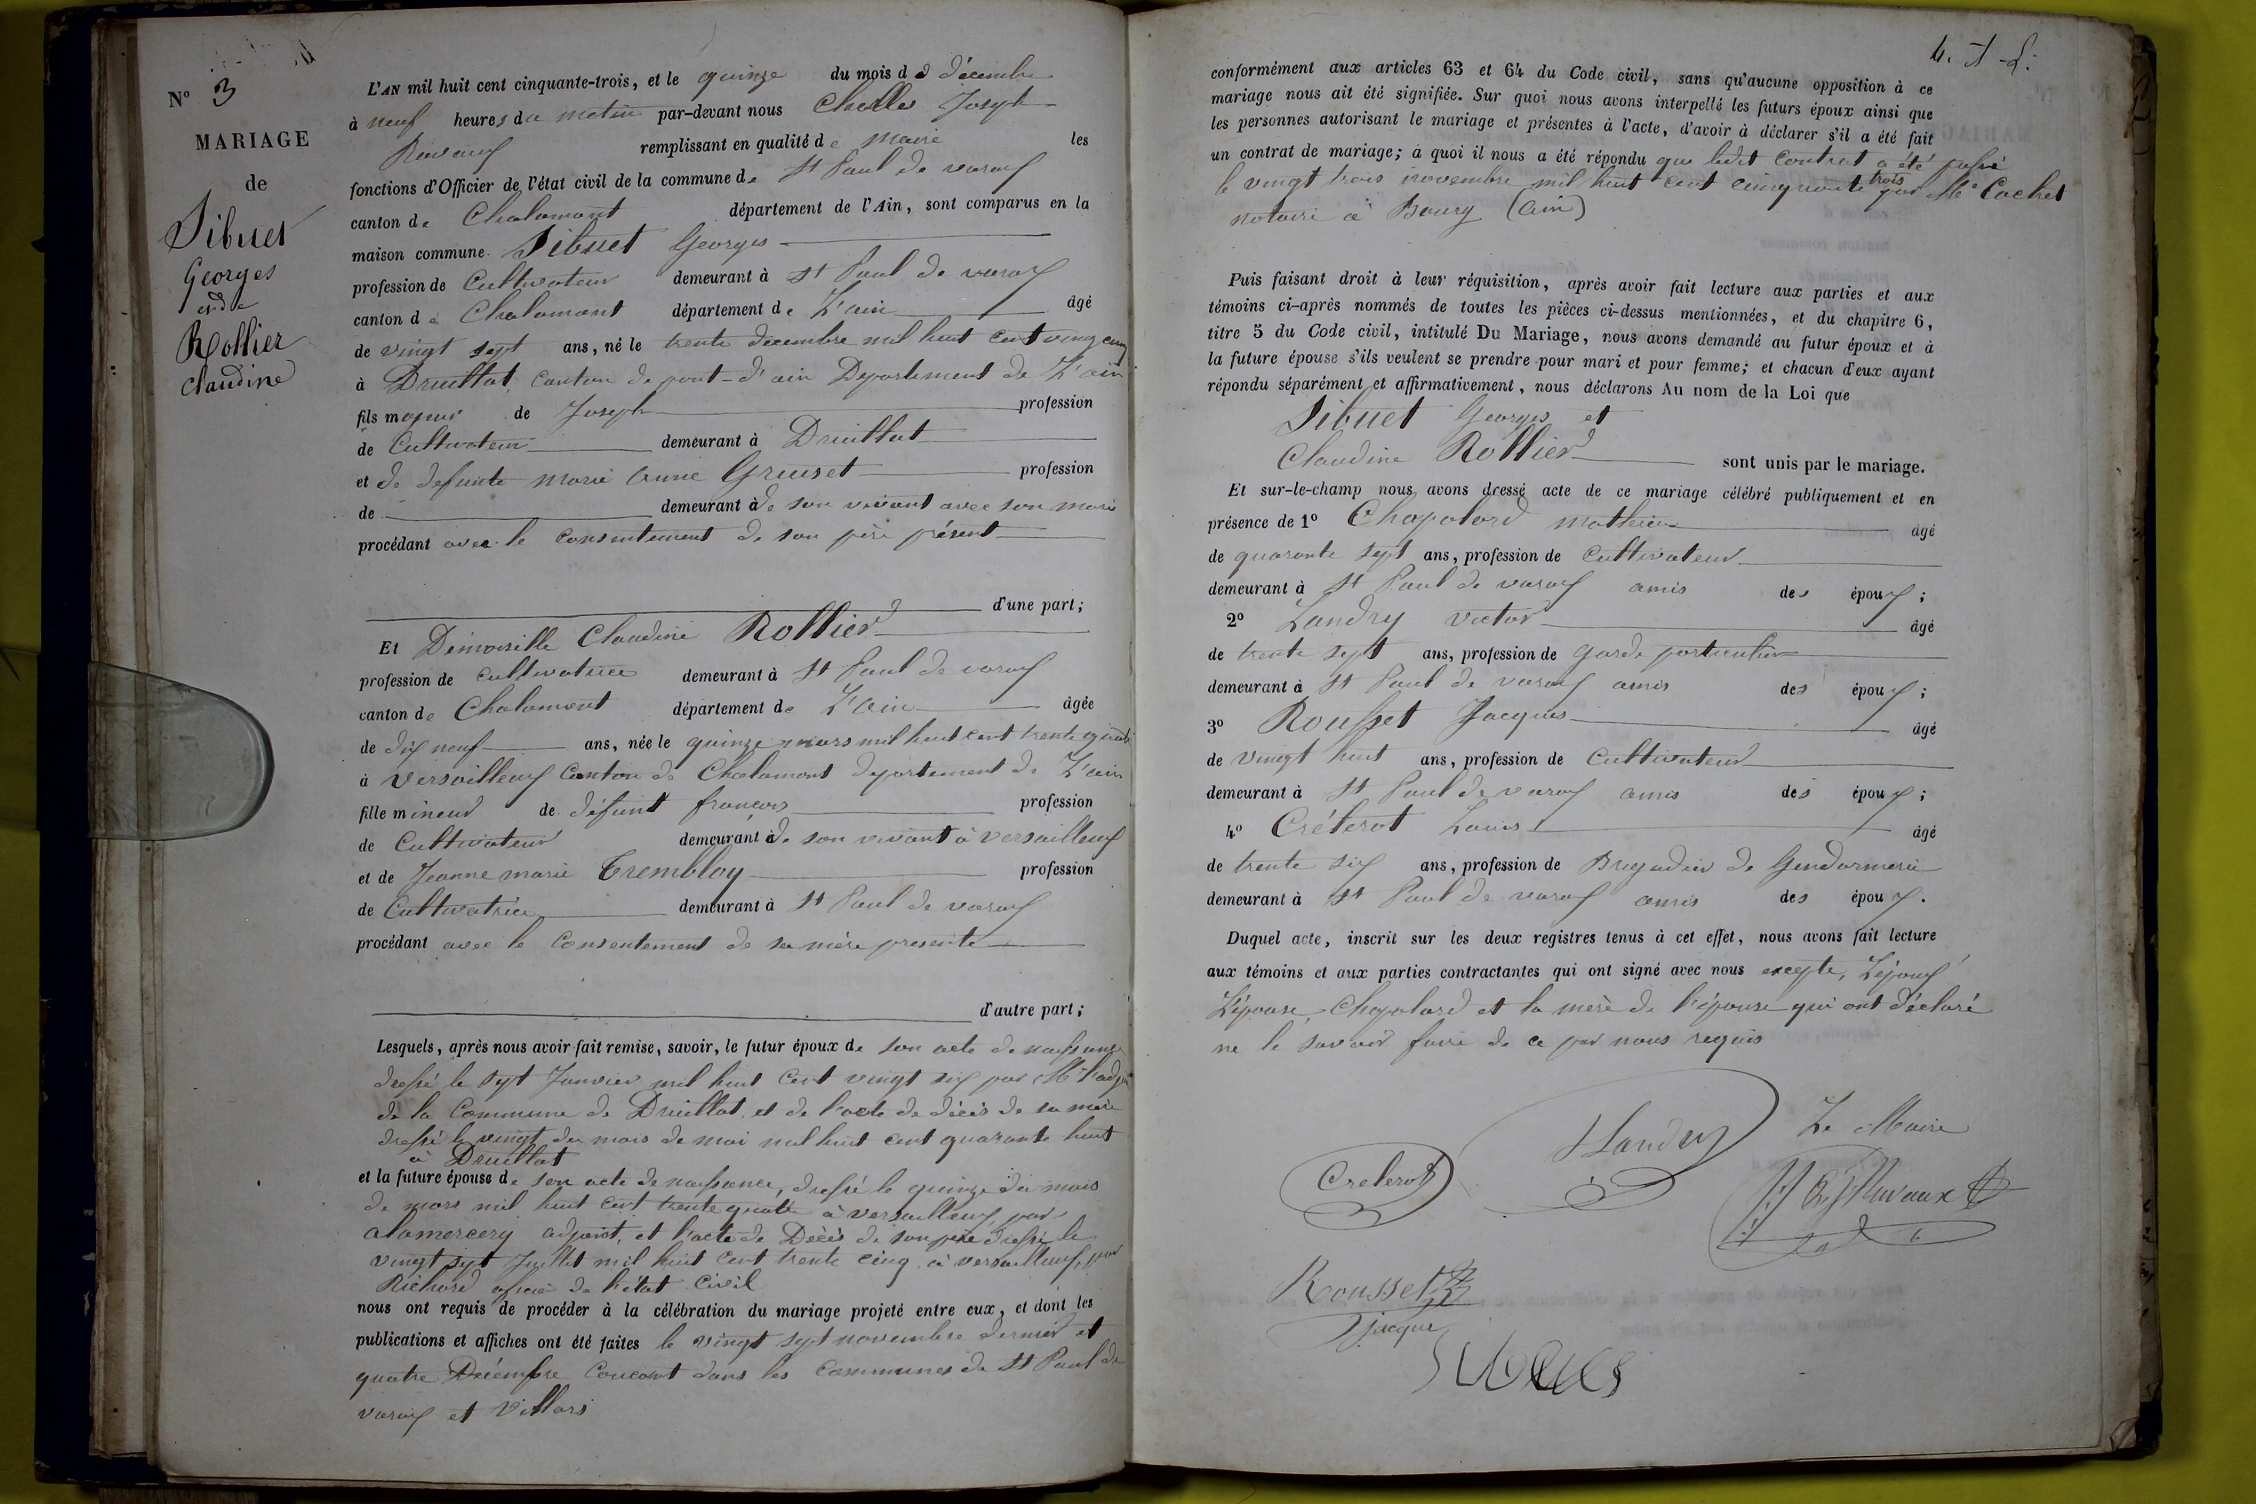 N° 3
MARIAGE
de
Sibuet
Georges
et de
Rollier
Claudine
L'AN mil huit cent cinquante-trois, et le quinze du mois de décembre
à neuf heures du matin par-devant nous Joseph
remplissant en qualité de Maire les
fonctions d'Officier de l'état civil de la commune de St Paul de varax
canton de Chalamont département de l'Ain, sont comparus en la
maison commune Sibuet Georges
profession de Cultivateur demeurant à St Paul de varax
canton de Chalamont département de L'ain âgé
de vingt sept ans, né le trente decembre mil huit cent vingt cinq
à Druillat canton de pont-d'ain Departement de L'ain
fils majeur de Joseph profession
de Cultivateur demeurant à Druillat
et de defunte marie anne Greuset profession
de demeurant à de son vivant avec son mari
procédant avec le consentement de son père présent
d'une part;
Et Demoiselle Claudine Rollier
profession de cultivatrice demeurant à St Paul de varax
canton de Chalamont département de L'ain âgée
de dix neuf ans, née le quinze mars mil huit cent trente quatre
à versailleux Canton de Chalamont departement de L'ain
fille mineur de défunt françois profession
de Cultivateur demeurant à de son vivant à versailleux
et de Jeanne marie Tremblay profession
de Cultivatrice demeurant à St Paul de varax
procédant avec le consentement de sa mère presente
d'autre part;
Lesquels, après nous avoir fait remise, savoir, le futur époux de son acte de naissance
dressé le sept Janvier mil huit cent vingt six par Mr l'adjt
de la Commune de Druillat et de l'acte de décès de sa mère
dressé le vingt du mois de mai mil huit cent quarante huit
à Druillat
et la future épouse de son acte de naissance, dressé le quinze du mois
de mars mil huit cent trente quatre à versailleux par
alamercery adjoint, et l'acte de Décès de son père dressé le
vingt sept Juillet mil huit cent trente cinq à versailleux, par
Richard officier de l'état civil
nous ont requis de procéder à la célébration du mariage projeté entre eux, et dont les
publications et affiches ont été faites le vingt sept novembre dernier et
quatre Décembre Courant dans les communes de St Paul de
varax et Villars
conformément aux articles 63 et 64 du Code civil, sans qu'aucune opposition à ce
mariage nous ait été signifiée. Sur quoi nous avons interpellé les futurs époux ainsi que
les personnes autorisant le mariage et présentes à l'acte, d'avoir à déclarer s'il a été fait
un contrat de mariage; à quoi il nous a été répondu que ledit contrat a été passé
le vingt trois novembre mil huit cent cinquante trois par Me Cachet
notaire à Bourg (ain)
Puis faisant droit à leur réquisition, après avoir fait lecture aux parties et aux
témoins ci-après nommés de toutes les pièces ci-dessus mentionnées, et du chapitre 6,
titre 5 du Code civil, intitulé Du Mariage, nous avons demandé au futur époux et à
la future épouse s'ils veulent se prendre pour mari et pour femme; et chacun d'eux ayant
répondu séparément et affirmativement, nous déclarons Au nom de la Loi que
Sibuet Georges et
Claudine Rollier sont unis par le mariage.
Et sur-le-champ nous avons dressé acte de ce mariage célébré publiquement et en
présence de 1° Chapolard mathieu âgé
de quarante sept ans, profession de Cultivateur
demeurant à St Paul de varax amis des époux;
2° Landry victor âgé
de trente sept ans, profession de garde particulier
demeurant à St Paul de varax amis des époux;
3° Rousset Jacques âgé
de vingt huit ans, profession de Cultivateur
demeurant à St Paul de varax amis des époux;
4° Créterot Louis âgé
de trente six ans, profession de Brigadier de Gendarmerie
demeurant à St Paul de varax amis des époux.
Duquel acte, inscrit sur les deux registres tenus à cet effet, nous avons fait lecture
aux témoins et aux parties contractantes qui ont signé avec nous excepté, L'époux
L'épouse, Chapolard et la mère de l'épouse qui ont déclaré
ne le savoir faire de ce par nous requis
Landry
Le Maire
Creterot
Rousset
Jacque